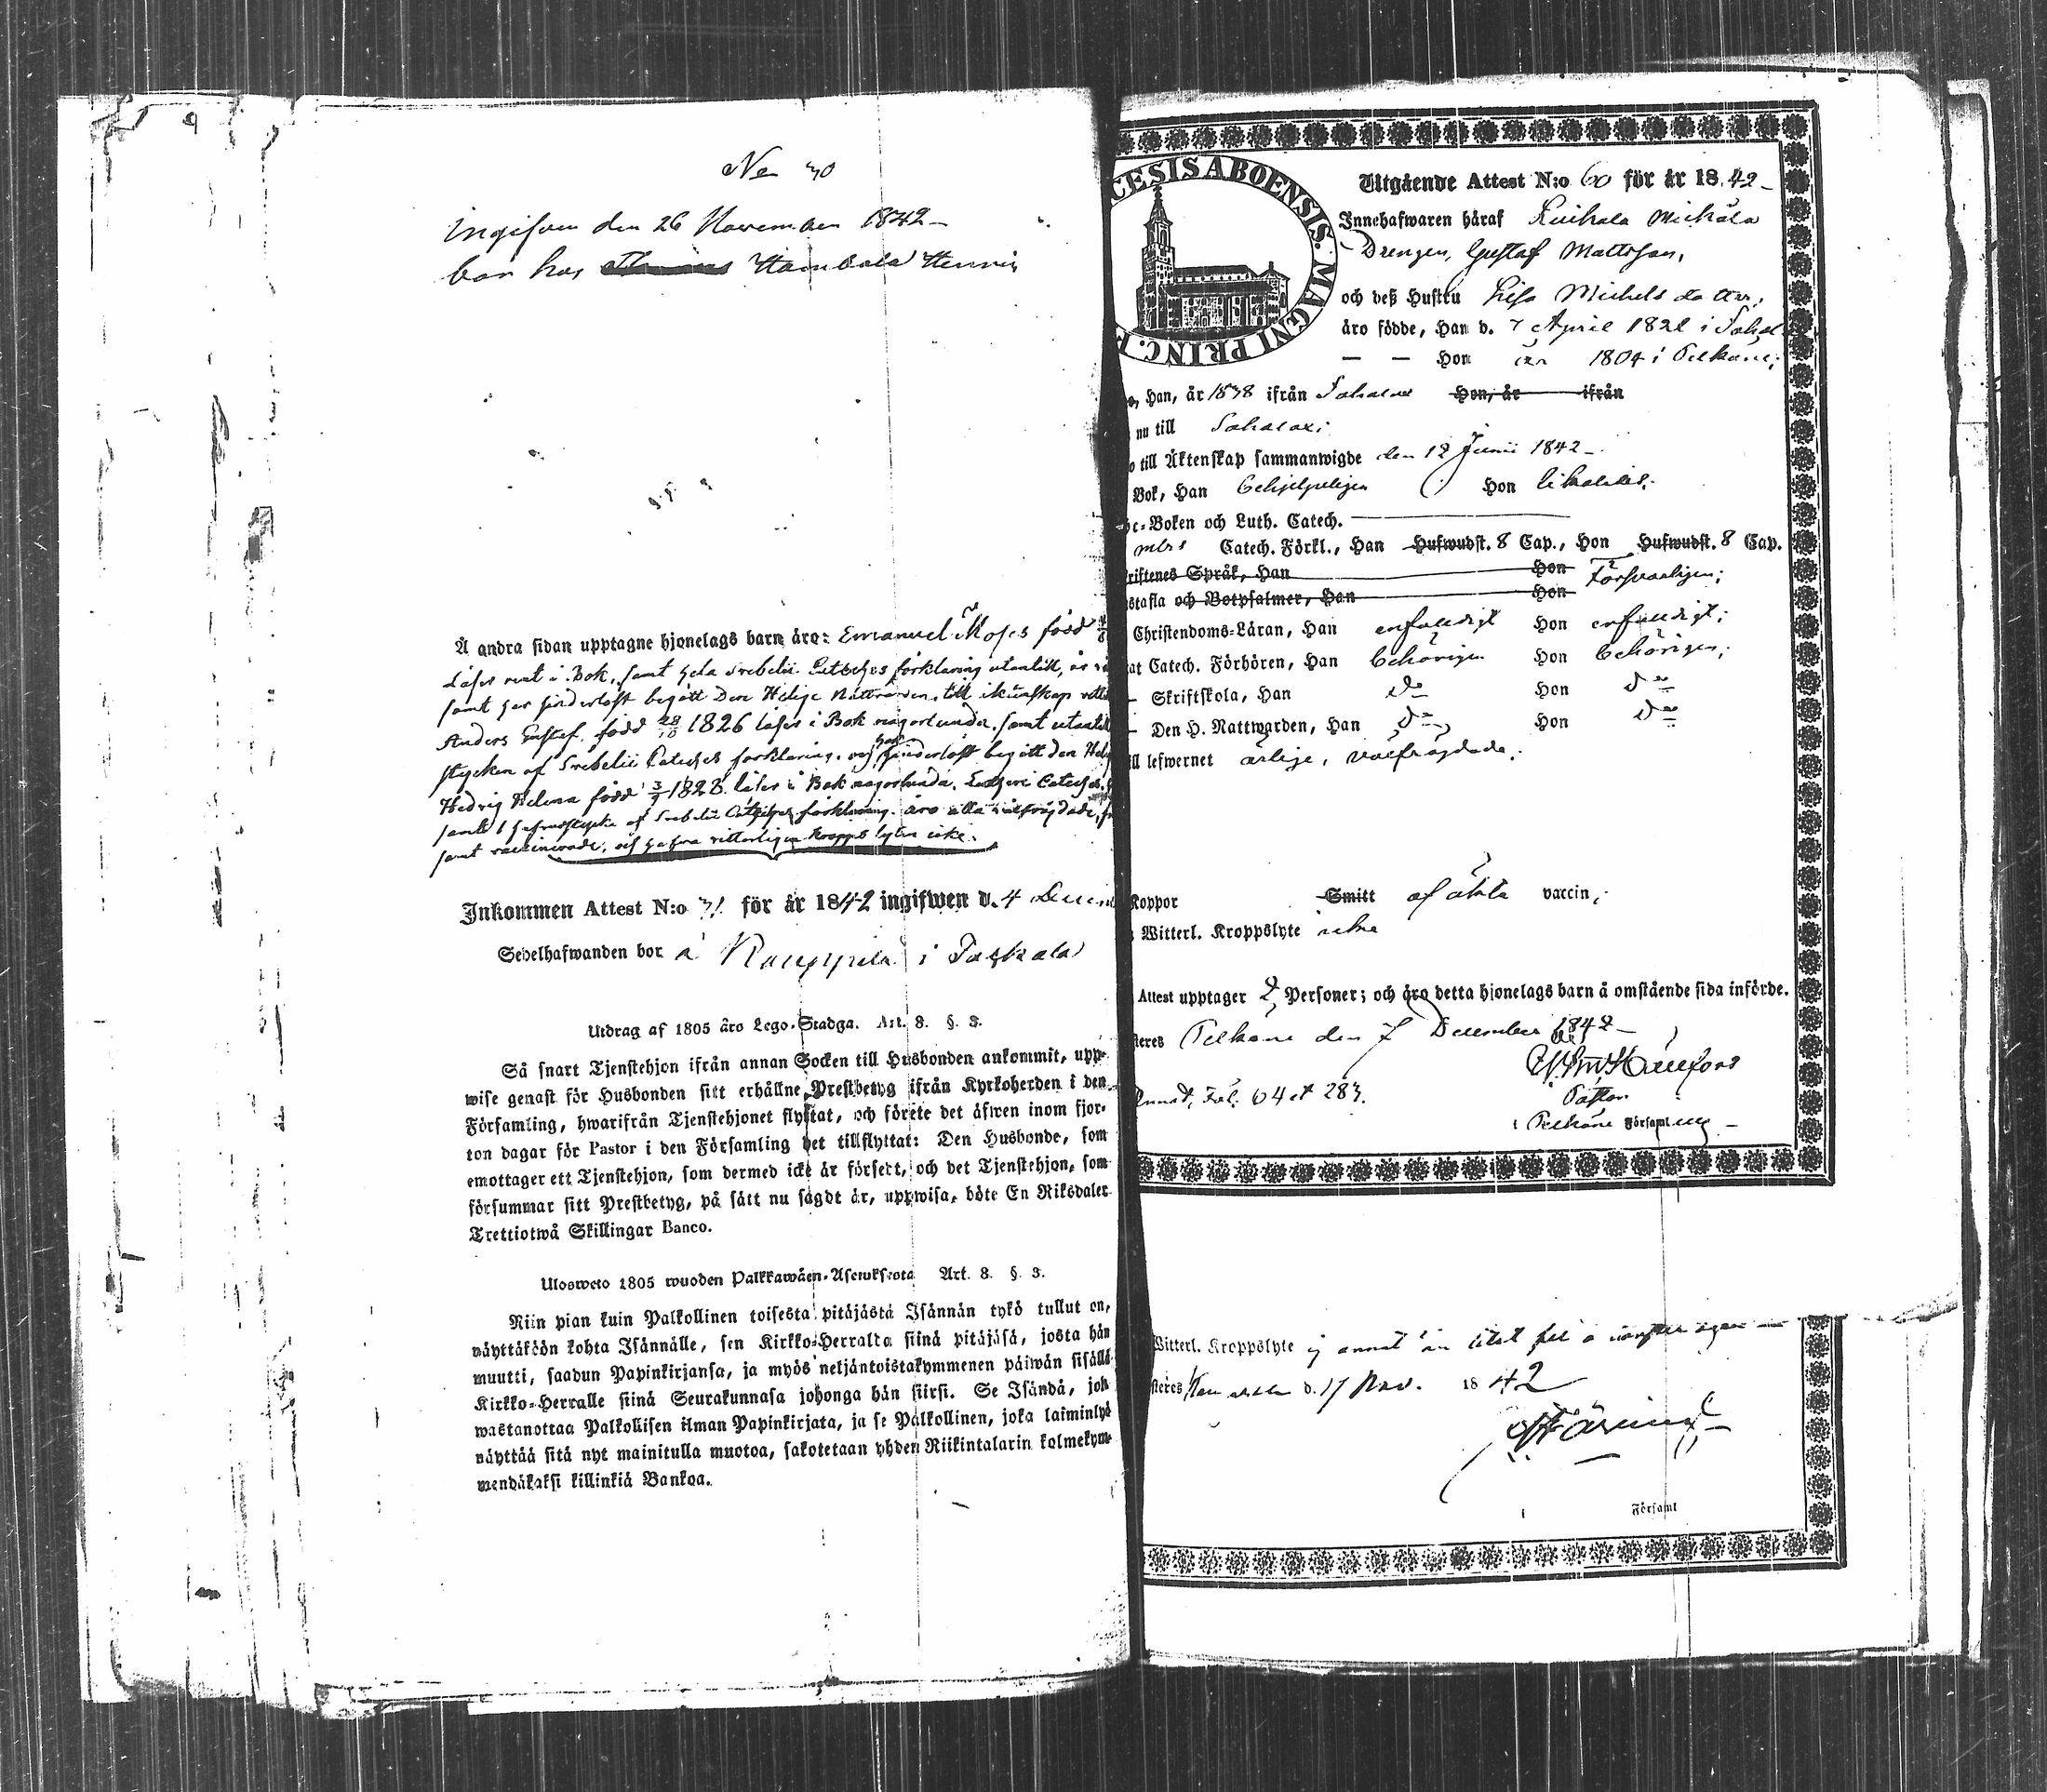 No 70
Ingifven den 26 November 1842
bor hos Hambala Henrie
Å andra sidan upptagne hjonelags barn äro: Emanuel Moses född
Läser rent i Bok, samt hela Svebelii Cateches förklaring utantill, är
samt har hinderlöst begått Den Helige Nattvarden, till
Anders Gustaf, född 28/10 1826 läser i Bok någorlunda, samt utantill
stycken af Svebelii Cateches förklaring, och har hinderlöst begått den Helige
Hedvig Helena född 3/9 1828. läser i Bok någorlunda, Lutheri Cateches
samt 1 hufvudstycke af Svebelii Cateches förklaring. äro alla välfrägdade,
samt vaccinerade, och hafva vitterligen kropps lyten icke.
Inkommen Attest N:o 71 för år 1842 ingifwen d. 4 Decem
Sedelhafwanden bor å Rauppila i
Utdrag af 1805 års Lego-Stadga. Art. 8. §. 3.
Så snart Tjenstehjon ifrån annan Socken till Husbonden ankommit, upp-
wise genast för Husbonden sitt erhållne Prestbetyg ifrån Kyrkoherden i den
Församling, hwarifrån Tjenstehjonet flyttat, och förete det äfwen inom fjor-
ton dagar för Pastor i den Församling det tillflyttat: Den Husbonde, som
emottager ett Tjenstehjon, som dermed icke är försedt, och det Tjenstehjon, som
försummar sitt Prestbetyg, på sätt nu sagdt är, uppwisa, böte En Riksdaler
Trettiotwå Skillingar Banco.
Ulosweto 1805 wuoden Palkkawäen-Asetuksesta Art. 8. §. 3.
Niin pian kuin Palkollinen toisesta pitäjästä Isännän tykö tullut on,
näyttäköön kohta Isännälle, sen Kirkko-Herralta siinä pitäjäsä, josta hän
muutti, saadun Papinkirjansa, ja myös neljäntoistakymmenen päiwän sisällä
Kirkko-Herralle siinä Seurakunnasa johonga hän siirsi. Se Isändä, jok
wastanottaa Palkollisen ilman Papinkirjata, ja se Palkollinen, joka laiminlyö
näyttää sitä nyt mainitulla muotoa, sakotetaan yhden Riikintalarin kolmekym-
mendäkaksi killinkiä Bankoa.
CESIS ABOENSIS. MAGNI PRINC.
Utgående Attest N:o 60 för år 1842
Innehafwaren häraf Kuikala Mickäla
Drengen, Gustaf Mattsson,
och deß Hustru Lisa Michelsdotter,
äro födde, Han d. 7 April 1821 i Sahal
— — Hon år 1804 i Pelkäne;
Han, år 1838 ifrån Sahalax Hon, år ifrån
nu till Sahalax;
till Äktenskap sammanwigde den 12 Junii 1842
Bok, Han behjelpeligen Hon likaledes;
-Boken och Luth. Catech.
Catech. Förkl., Han Hufwudst. 8 Cap., Hon Hufwudst. 8 Cap.
riftenes Språk, Han Hon Försvarligen;
stafla och Botpsalmer, Han Hon
Christendoms-Läran, Han enfaldigt Hon enfaldigt;
Catech. Förhören, Han behörigen Hon behörigen;
— Skriftskola, Han do Hon do
— Den H. Nattwarden, Han do Hon do
ill lefwernet ärlige, välfrägdade.
Koppor Smitt af äkta vaccin;
Witterl. Kroppslyte icke
Attest upptager 2 Personer; och äro detta hjonelags barn å omstående sida införde.
steres Pelkäne den 7 December 1842
Pastor
i Pelkäne Församling
Fol. 64 et 283.
Witterl. Kroppslyte ej annat än
steres d. 17 Nov. 1842
Församl